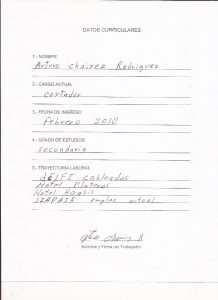 DATOS CURRICULARES
1.- NOMBRE
Arturo Chairez Rodriguez
2.- CARGO ACTUAL
cortador
3.- FECHA DE INGRESO
Febrero 2010
4.- GRADO DE ESTUDIOS
secundaria
5.- TRAYECTORIA LABORAL
DELFI cableados
Hotel Plateros
Hotel
empleo actual
Nombre y Firma del Trabajador